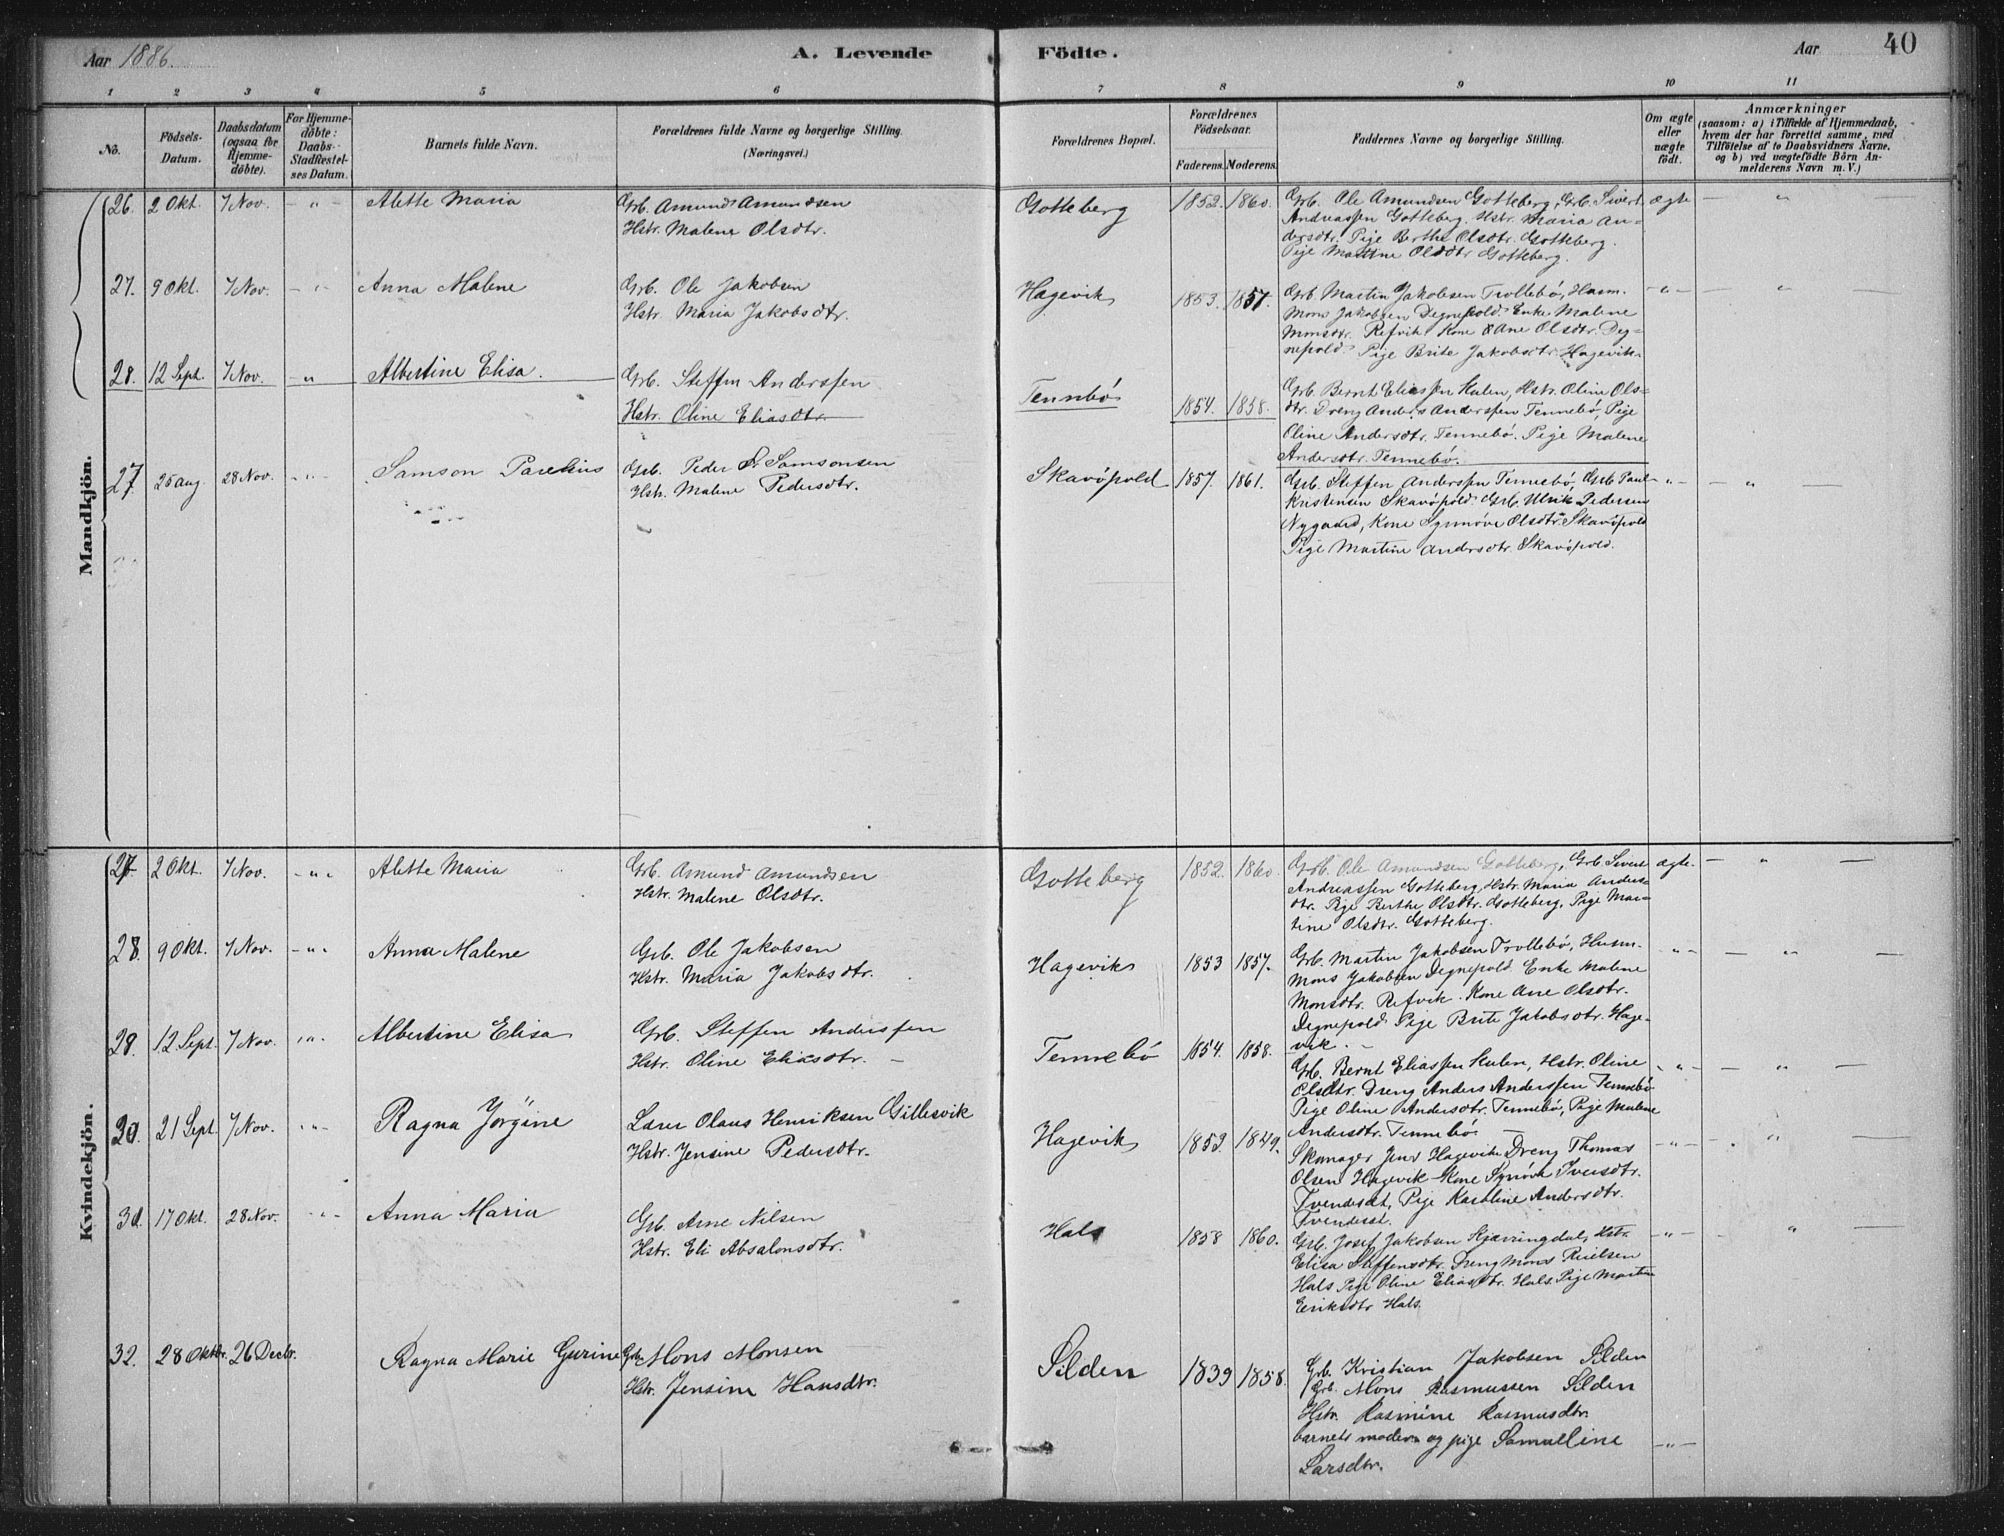 Aar 1886.
A. Levende Födte.
Aar
40
1 2 3 4 5 6 7 8 9 10 11
No.
Födsels-Datum.
Daabsdatum (ogsaa for Hjemme-döbte).
For Hjemme-döbte: Daabs-Stadfæstel-ses Datum.
Barnets fulde Navn.
Forældrenes fulde Navne og borgerlige Stilling.
(Næringsvei.)
Forældrenes Bopæl.
Forældrenes Födselsaar.
Faderens. Moderens.
Faddernes Navne og borgerlige Stilling.
Om ægte eller uægte födt.
Anmærkninger
(saasom: a) i Tilfælde af Hjemmedaab,
hvem der har forrettet samme, med
Tilföielse af to Daabsvidners Navne,
og b) ved uægtefödte Börn An-
melderens Navn m. V.)
Mandkjön.
26. 2 Okt. 7 Nov. - " - Alette Maria Grb. Amund Amundsen Gotteberg 1852. 1860. Grb. Ole Amundsen Gotteberg, Grb. Sivert ægte - " -
Hstr. Malene Olsdtr. Andreassen Gotteberg. Hstr. Maria An-
dersdtr. Pige Berthe Olsdtr. Gotteberg.
Pige Martine Olsdtr Gotteberg.
27. 9 Okt. 7 Nov. - " - Anna Malene Grb. Ole Jakobsen Hagevik 1853. 1857. Grb. Martin Jakobsen Trollebö, Husm. - " - - " -
Hstr. Maria Jakobsdtr. Mons Jakobsen Degnepold. Enke Malene
Monsdtr. Refvik Kone Ane Olsdtr. Deg-
nepold. Pige Brite Jakobsdtr. Hagevik.
28. 12 Sept. 7 Nov. " Albertine Elisa. Grb. Steffen Anderssen Tennebö 1854. 1858. Grb. Bernt Eliassen Hulen, Hstr. Oline Ols-
Hstr. Oline Eliasdtr. dtr. Dreng Anders Anderssen Tennebö, Pige
Oline Andersdtr. Tennebö. Pige Malene
Andersdtr. Tennebö.
27 25 aug. 28 Nov. - " - Samson Parelius Grb. Peder Samsonsen Skavöpold 1857. 1861. Grb. Steffen Anderssen Tennebö, Grb Paul - " - - " -
Hstr. Malene Pedersdtr. Kristensen Skavöpold. Grb. Ulrik Pedersen
Nygaard, Kone Synnöve Olsdtr. Skavöpold
Pige Martine Andersdtr. Skavöpold.
Kvindekjön.
27 2 Okt. 7 Nov. - " - Alette Maria Grb. Amund Amundsen Gotteberg 1852. 1860. Grb. Ole Amundsen Gotteberg, Grb Sivert ægte. - " -
Hstr. Malene Olsdtr. Andreassen Gotteberg, Hstr. Maria Anders-
dtr. Pige Berthe Olsdtr. Gotteberg, Pige Mar-
tine Olsdtr. Gotteberg.
28. 9 Okt. 7 Nov. - " - Anna Malene Grb. Ole Jakobsen Hagevik 1853 1857. Grb. Martin Jakobsen Trollebö, Husm. - " - - " -
Hstr. Maria Jakobsdtr. Mons Jakobsen Degnepold Enke Malene
Monsdtr. Refvik. Kone Ane Olsdtr.
Degnepold Pige Brite Jakobsdtr. Hage-
vik. -
12 Sept. 7 Nov. - " - Albertine Elisa Grb. Steffen Anderssen Tennebö 1854. 1858. Grb. Bernt Eliassen Hulen, Hstr. Oline - " - - " -
Hstr. Oline Eliasdtr. - Olsdtr. Dreng Anders Anderssen Tennebö
Pige Oline Andersdtr. Tennebö, Pige Malene
Andersdtr. Tennebö
21 Sept 7 Nov. - " - Ragna Jörgine Lærer Olaus Henriksen Gillesvik Hagevik 1853. 1849. Jens Hagevik Dreng Thomas - " - - " -
Hstr. Jensine Pedersdtr. Olsen Hagevik Kone Synöve Iversdtr.
Pige Karoline Andersdtr.
17 Okt. 28 Nov. - " - Anna Maria Grb. Arne Nilsen Hals 1858 1860. Grb. Josef Jakobsen Kjærringdal, Hstr. - " - - " -
Hstr. Eli Absalonsdtr. Elisa Steffensdtr. Dreng Mons
Hals Pige Oline Eliasdtr. Hals. Pige Martine
Eriksdtr Hals.
32. 28 Oktbr. 26 Decbr. Ragna Marie Gurine Grb. Mons Monsen Silden 1839 1858. Grb. Kristian Jakobsen Silden
Hstr. Jensine Hansdtr. Grb. Mons Rasmussen Silden
Hstr. Rasmine Rasmusdtr.
barnets moder og pige Samulline - " -
Larsdtr.